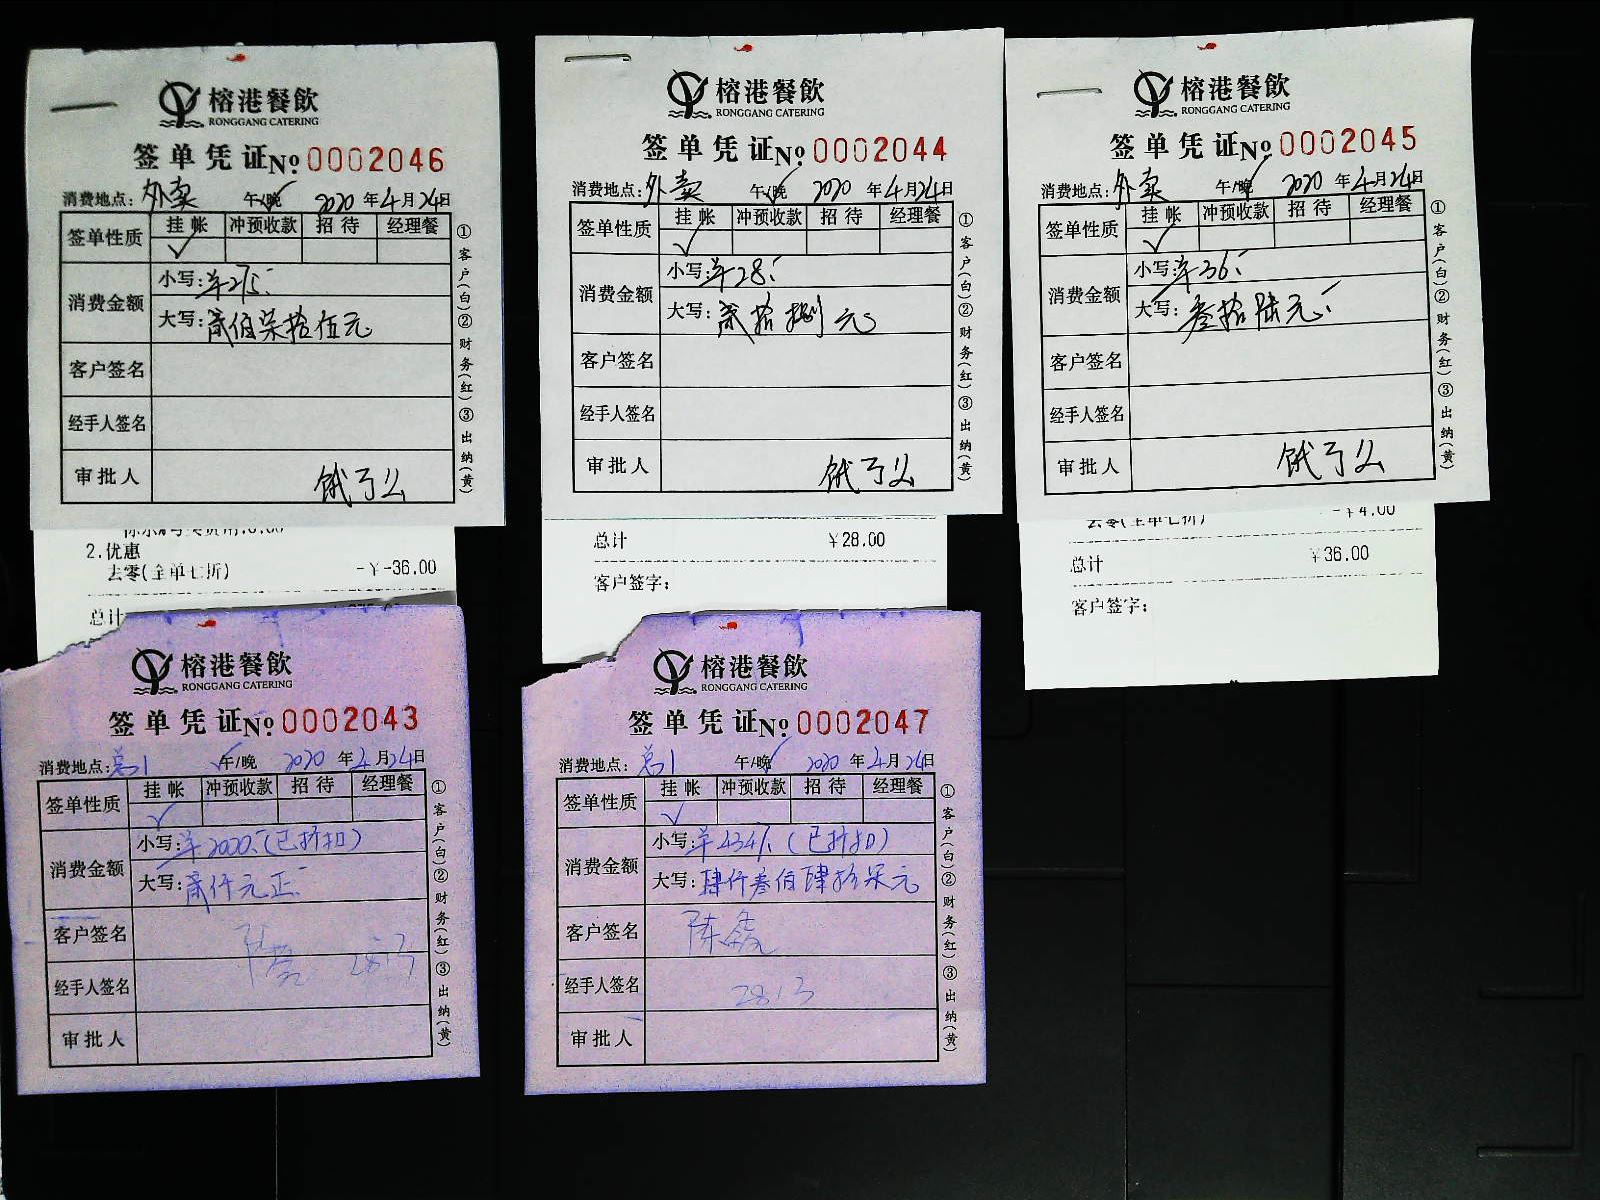 榕港餐飲
RONGGANG CATERING
签单凭证№ 0002046
消费地点：外卖 午/晚 2020年4月24日
签单性质 挂帐 冲预收款 招待 经理餐
✓
消费金额 小写：羊275
大写：贰佰柒拾伍元
客户签名
经手人签名
审批人 饿了么
①客户(白)②财务(红)③出纳(黄)
2.优惠
去零(全单七折) -￥-36.00
总计
榕港餐飲
RONGGANG CATERING
签单凭证№ 0002044
消费地点：外卖 午/晚 2020年4月24日
签单性质 挂帐 冲预收款 招待 经理餐
✓
消费金额 小写：羊28
大写：贰拾捌元
客户签名
经手人签名
审批人 饿了么
①客户(白)②财务(红)③出纳(黄)
总计 ￥28.00
客户签字：
榕港餐飲
RONGGANG CATERING
签单凭证№ 0002045
消费地点：外卖 午/晚 2020年4月24日
签单性质 挂帐 冲预收款 招待 经理餐
✓
消费金额 小写：羊36
大写：叁拾陆元
客户签名
经手人签名
审批人 饿了么
①客户(白)②财务(红)③出纳(黄)
去零(全单七折) -￥4.00
总计 ￥36.00
客户签字：
榕港餐飲
RONGGANG CATERING
签单凭证№ 0002043
消费地点：总1 午/晚 2020年4月24日
签单性质 挂帐 冲预收款 招待 经理餐
✓
消费金额 小写：羊2000(已折扣)
大写：贰仟元正
客户签名
2813
经手人签名
审批人
①客户(白)②财务(红)③出纳(黄)
榕港餐飲
RONGGANG CATERING
签单凭证№ 0002047
消费地点：总1 午/晚 2020年4月24日
签单性质 挂帐 冲预收款 招待 经理餐
✓
消费金额 小写：羊4347(已折扣)
大写：肆仟叁佰肆拾柒元
客户签名 陈鑫
经手人签名 2813
审批人
①客户(白)②财务(红)③出纳(黄)